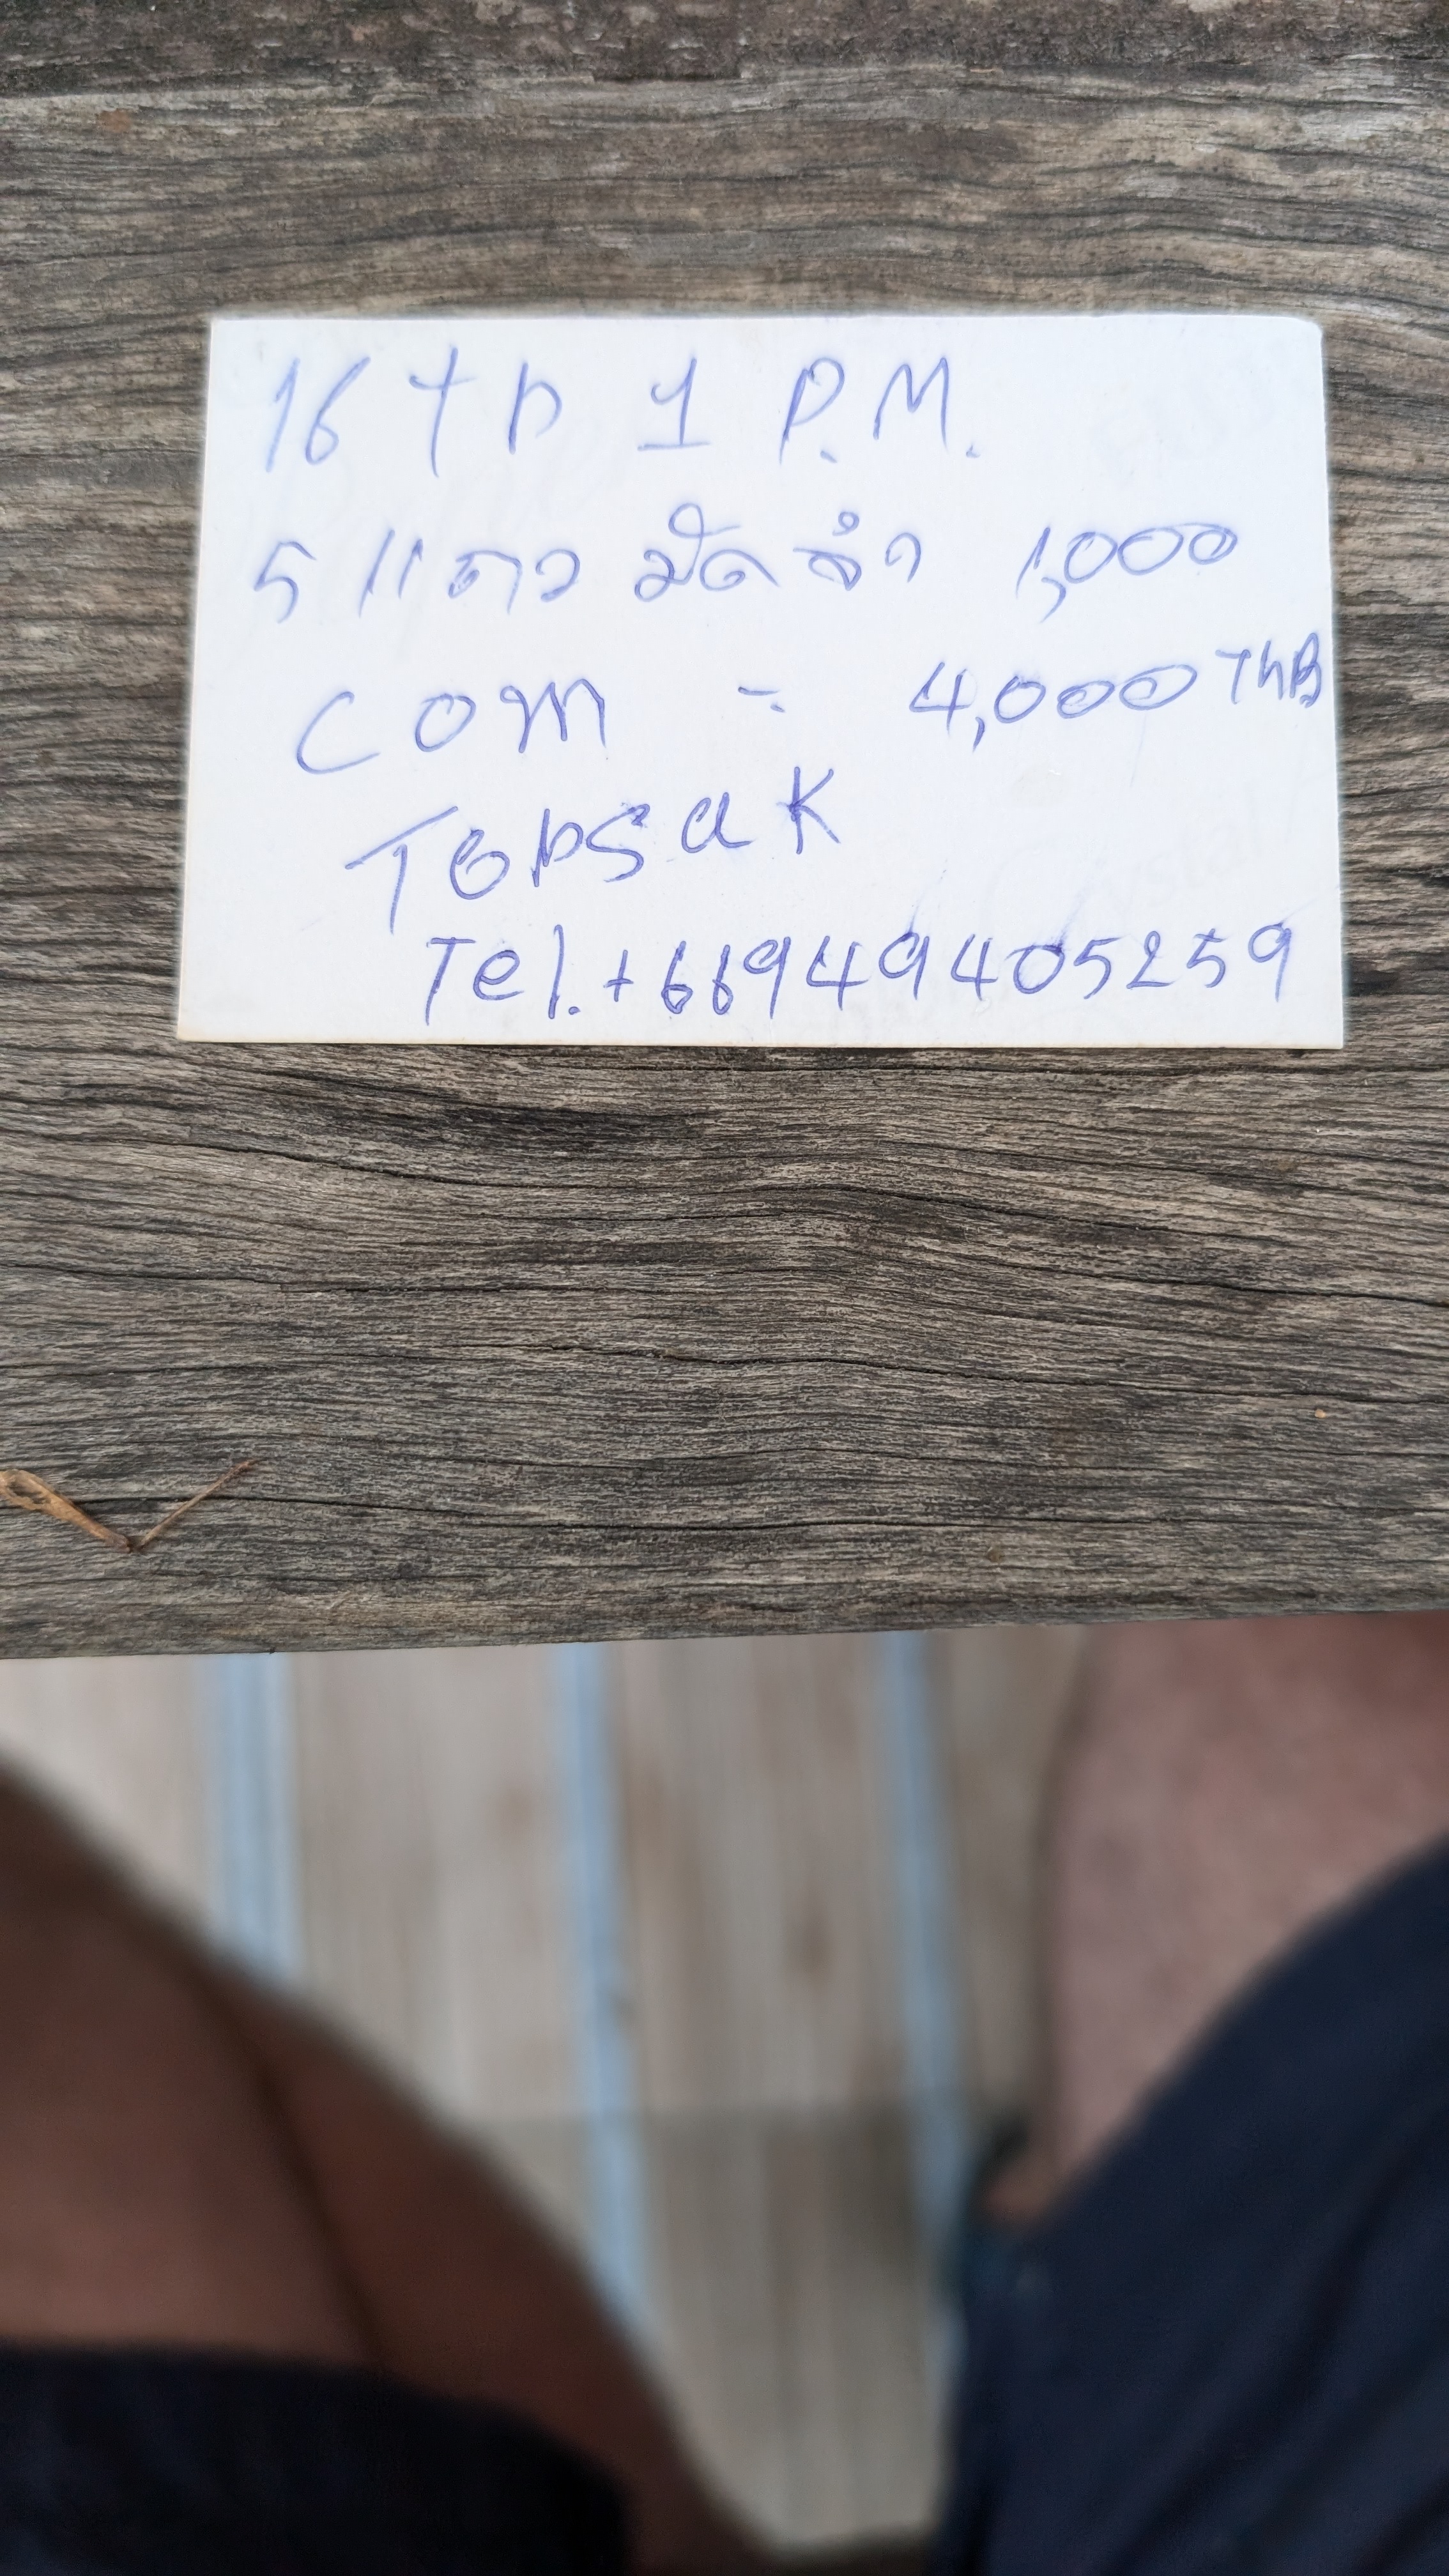 16 th 1 P.M.
5 แถว มัดจำ 1,000
com - 4,000 ThB
Topsak
Tel.+66949405259